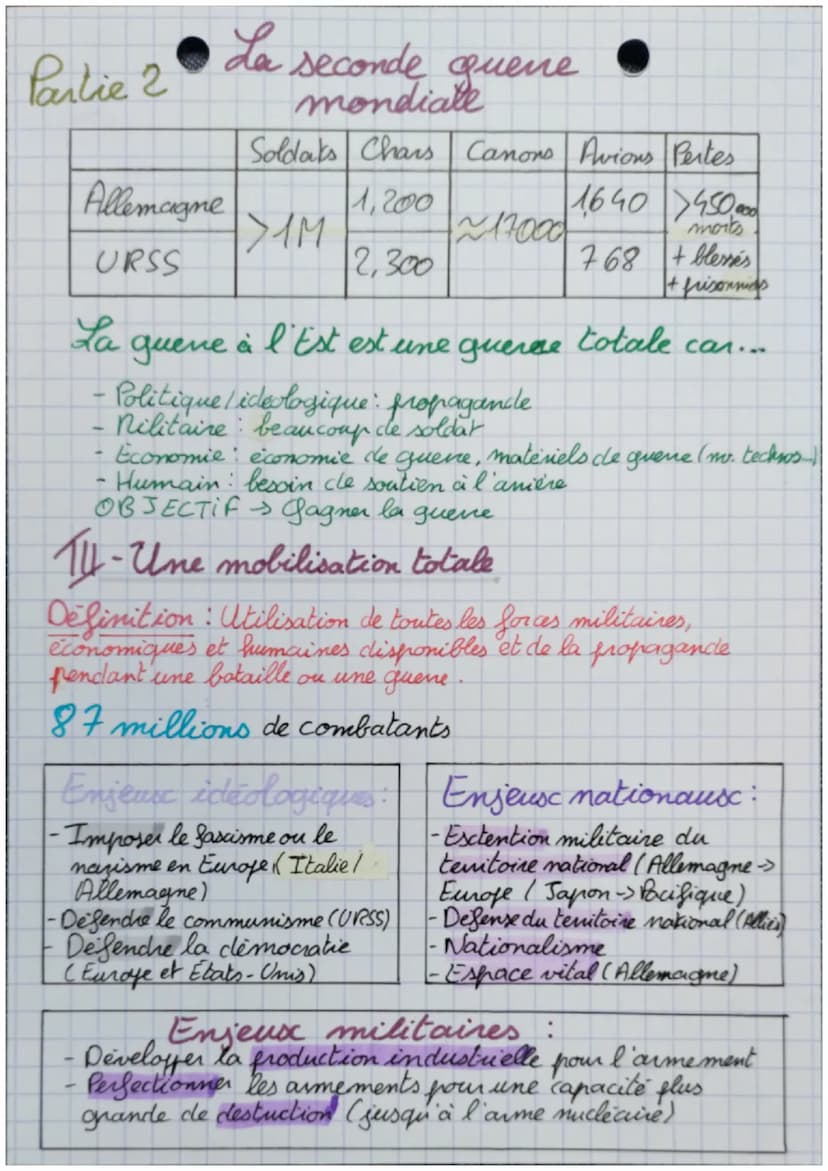 Partie 2
La seconde guerre
mondiale
Soldats Chars Canons Avions Pertes
Allemagne >1M 1,200 ≈17000 1640 >450 000
morts
URSS 2,300 768 + blessés
+ prisonniers
La guerre à l'Est est une guerre totale car...
- Politique/ideologique: propagande
- Militaire : beaucoup de soldat
- Économie : économie de guerre, matériels de guerre (nv. technos...)
- Humain : besoin de soutien à l'arrière
OBJECTiF → Gagner la guerre
III - Une mobilisation totale
Définition : Utilisation de toutes les forces militaires,
économiques et humaines disponibles et de la propagande
pendant une bataille ou une guerre.
87 millions de combatants
Enjeux idéologiques:
- Imposer le fascisme ou le
nazisme en Europe (Italie/
Allemagne)
- Défendre le communisme (URSS)
- Défendre la démocratie
(Europe et États-Unis)
Enjeux nationaux :
- Extention militaire du
territoire national (Allemagne →
Europe / Japon → Pacifique)
- Défense du territoire national (Alliés)
- Nationalisme
- Espace vital (Allemagne)
Enjeux militaires :
- Développer la production industrielle pour l'armement
- Perfectionner les armements pour une capacité plus
grande de destuction (jusqu'à l'arme nucléaire)